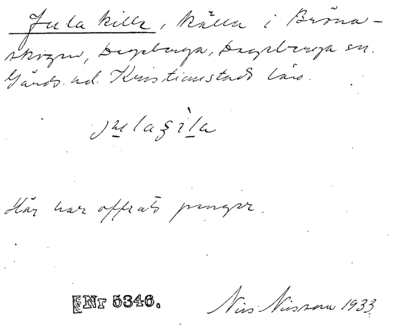 Jula källa, källa i Bröna-
skogen, Degeberga, Degeberga sn.
Gärds hd. Kristianstads län.
julaʂila
Här har offrats pengar.
Nr 5346.
Nils Nilsson 1933